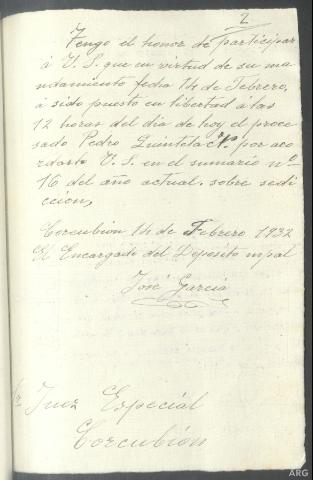 2
Tengo el honor de participar
á V. S. que en virtud de su ma-
ndamiento fecha 14 de Febrero,
á sido puesto en libertad a las
12 horas del dia de hoy el proce-
sado Pedro Quintela por aco
rdarlo V. S. en el sumario nº
16 del año actual, sobre sedi
ccion,
Corcubion 14 de Febrero 1932
El Encargado del Deposito mpal
José Garcia
Sr Juez Especial
Corcubión
ARG